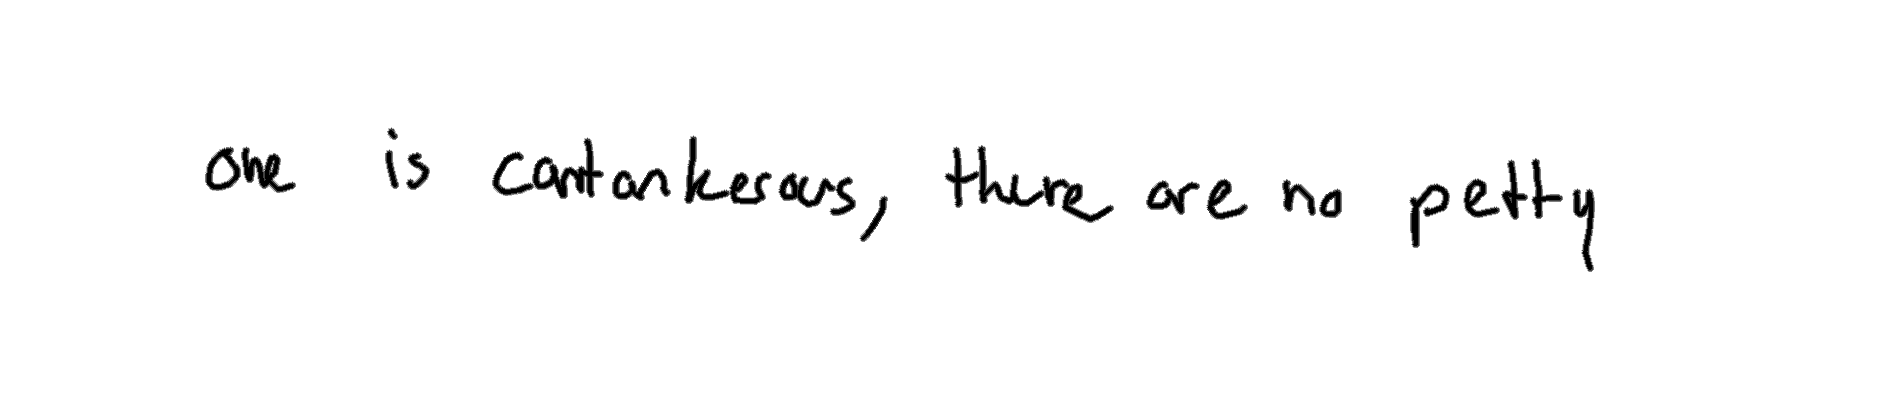 one is cantankerous, there are no petty